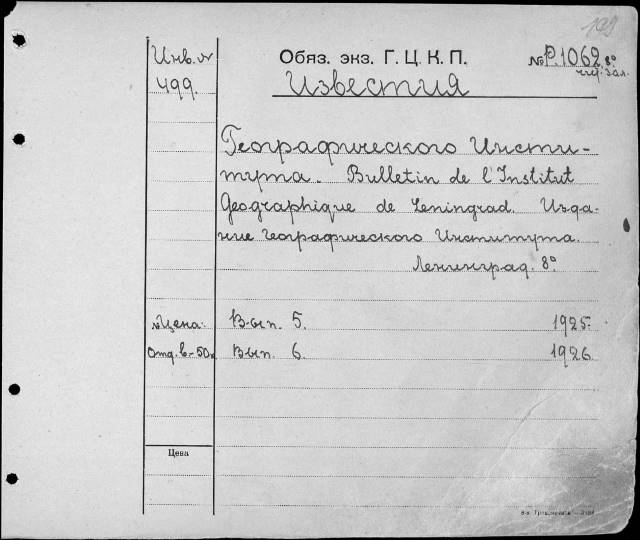 199
Инв. №
499.
Обяз. экз. Г. Ц. К. П.
№ Р.1062, 8°
чит. зал.
Известия
Географического Инсти-
тута. Bulletin de l'Institut
Geographique de Leningrad. Изда-
ние Географического Института.
Ленинград. 8°
Цена:
Вып. 5. 1925.
Отд. в.-50к
Вып. 6. 1926
Цена